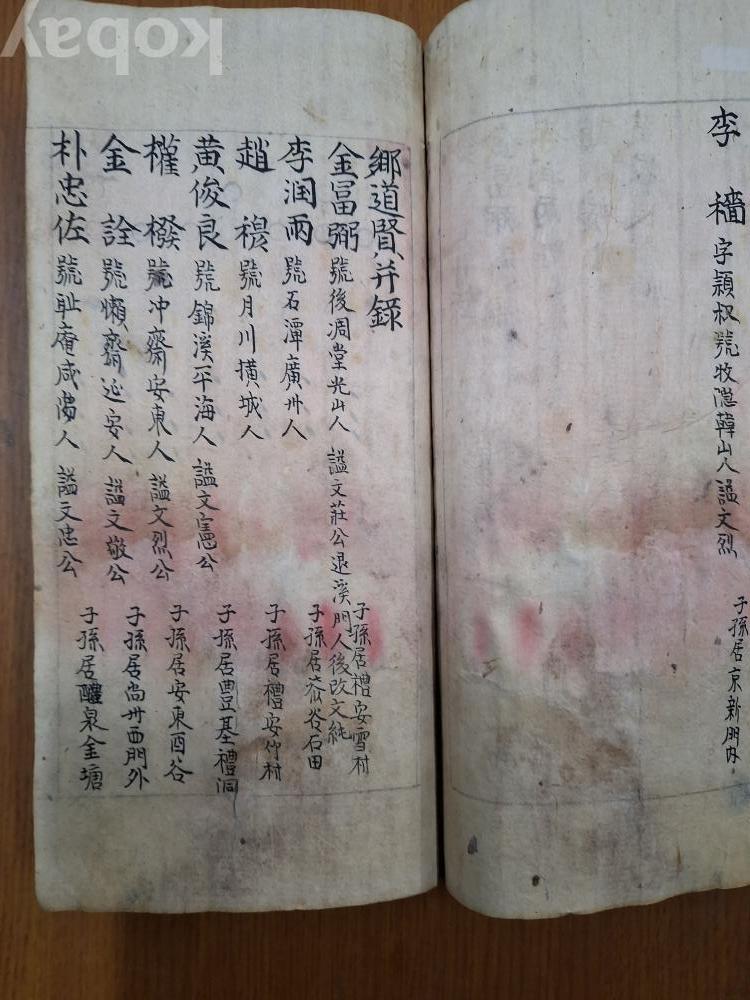 李穡 字穎叔號牧隱韓山人諡文烈
子孫居京新門內
鄉道賢并錄
金冨弼 號後凋堂光山人 諡文莊公退溪門人後改文純
子孫居禮安雪村
李潤雨 號石潭廣州人
子孫居茶谷石田
趙穆 號月川橫城人
子孫居禮安竹村
黃俊良 號錦溪平海人 諡文憲公
子孫居豊基禮洞
權橃 號冲齋安東人 諡文烈公
子孫居安東酉谷
金詮 號懶齋延安人 諡文敬公
子孫居尙州西門外
朴忠佐 號耻庵咸陽人 諡文忠公
子孫居醴泉金塘
kobay